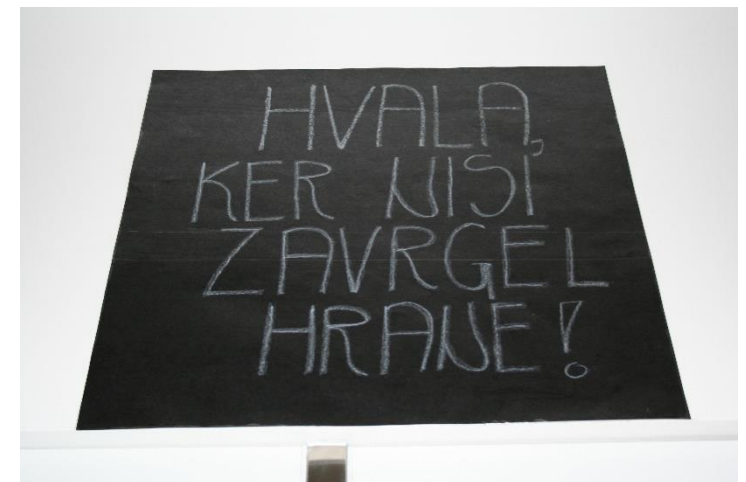 HVALA,
KER NISI
ZAVRGEL
HRANE!